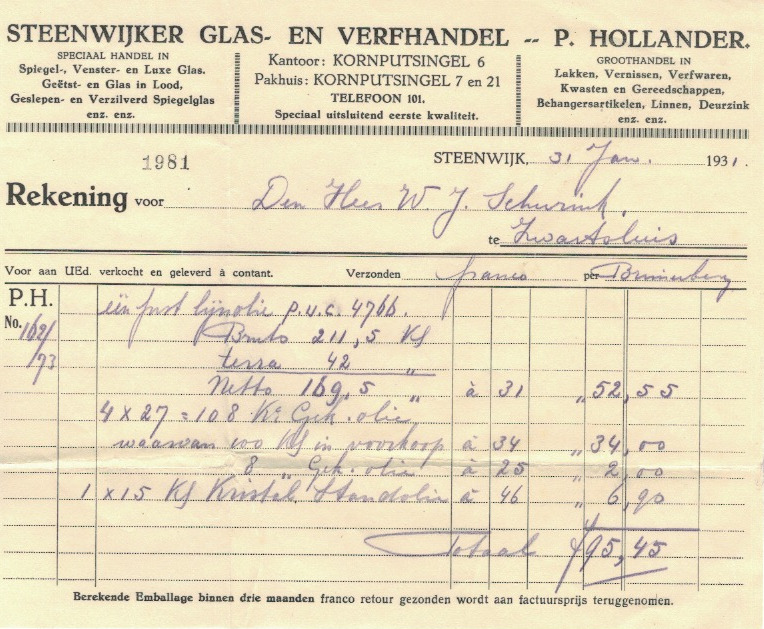 STEENWIJKER GLAS- EN VERFHANDEL -- P. HOLLANDER.
SPECIAAL HANDEL IN
Spiegel-, Venster- en Luxe Glas.
Geëtst- en Glas in Lood,
Geslepen- en Verzilverd Spiegelglas
enz. enz.
Kantoor: KORNPUTSINGEL 6
Pakhuis: KORNPUTSINGEL 7 en 21
TELEFOON 101.
Speciaal uitsluitend eerste kwaliteit.
GROOTHANDEL IN
Lakken, Vernissen, Verfwaren,
Kwasten en Gereedschappen,
Behangersartikelen, Linnen, Deurzink
enz. enz.
1981
STEENWIJK, 31 Jan. 1931.
Rekening voor Den Heer W. J. Schurink.
te Zwartsluis
Voor aan UEd. verkocht en geleverd à contant. Verzonden franco per Brinnenberg
P.H. één fust lijnolie p.v.c. 4766.
No. 162/ Bruto 211,5 KG
/73 terra 42 "
Netto 169,5 " à 31 " 52,55
4 x 27 = 108 Kg Gek. olie
waarvan 100 KG in voorkoop à 34 " 34,00
8 " Gek. olie à 25 " 2,00
1 x 15 KG Kristal. Standolie à 46 " 6,90
Totaal f 95,45
Berekende Emballage binnen drie maanden franco retour gezonden wordt aan factuursprijs teruggenomen.